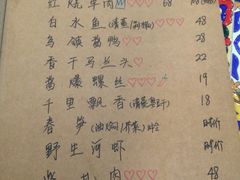 红烧羊肉 68
白水鱼(清蒸/红烧) 48
乌镇酱鸭 28
香干马兰头 22
酱爆螺丝 19
千里飘香 18
春笋(油焖/荠菜) 时价
野生河虾 时价
肉 48